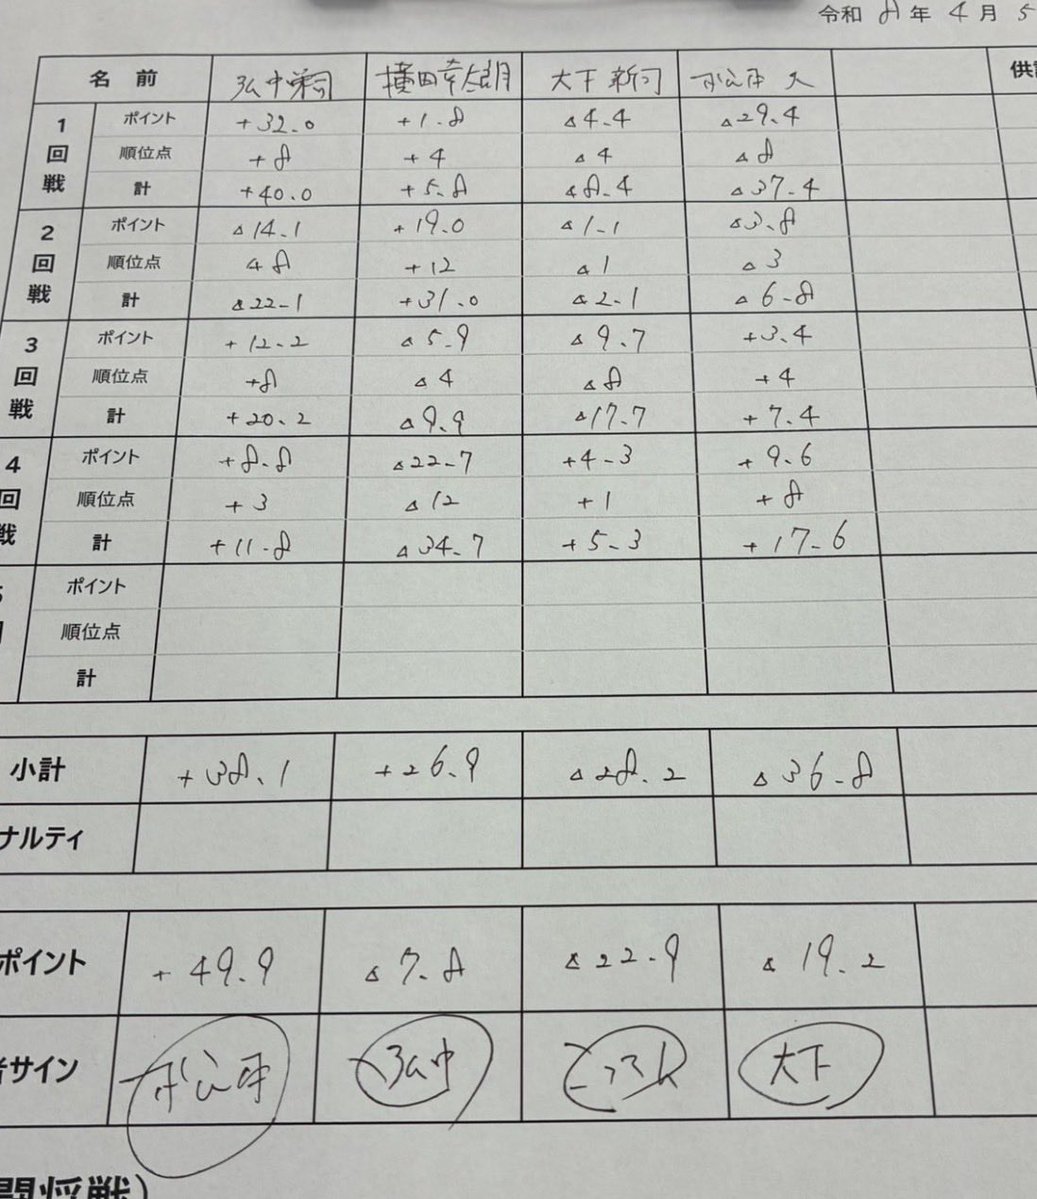 令和 8 年 4 月 5
名 前 弘中栄司 横田幸太朗 大下新司 松山 大 供
1回戦 ポイント +32.0 +1.8 △4.4 △29.4
順位点 +8 +4 △4 △8
計 +40.0 +5.8 △8.4 △37.4
2回戦 ポイント △14.1 +19.0 △1.1 △3.8
順位点 △8 +12 △1 △3
計 △22.1 +31.0 △2.1 △6.8
3回戦 ポイント +12.2 △5.9 △9.7 +3.4
順位点 +8 △4 △8 +4
計 +20.2 △9.9 △17.7 +7.4
4回戦 ポイント +8.8 △22.7 +4.3 +9.6
順位点 +3 △12 +1 +8
計 +11.8 △34.7 +5.3 +17.6
ポイント
順位点
計
小計 +38.1 +26.9 △28.2 △36.8
ナルティ
ポイント +49.9 △7.8 △22.9 △19.2
者サイン 弘中 大下